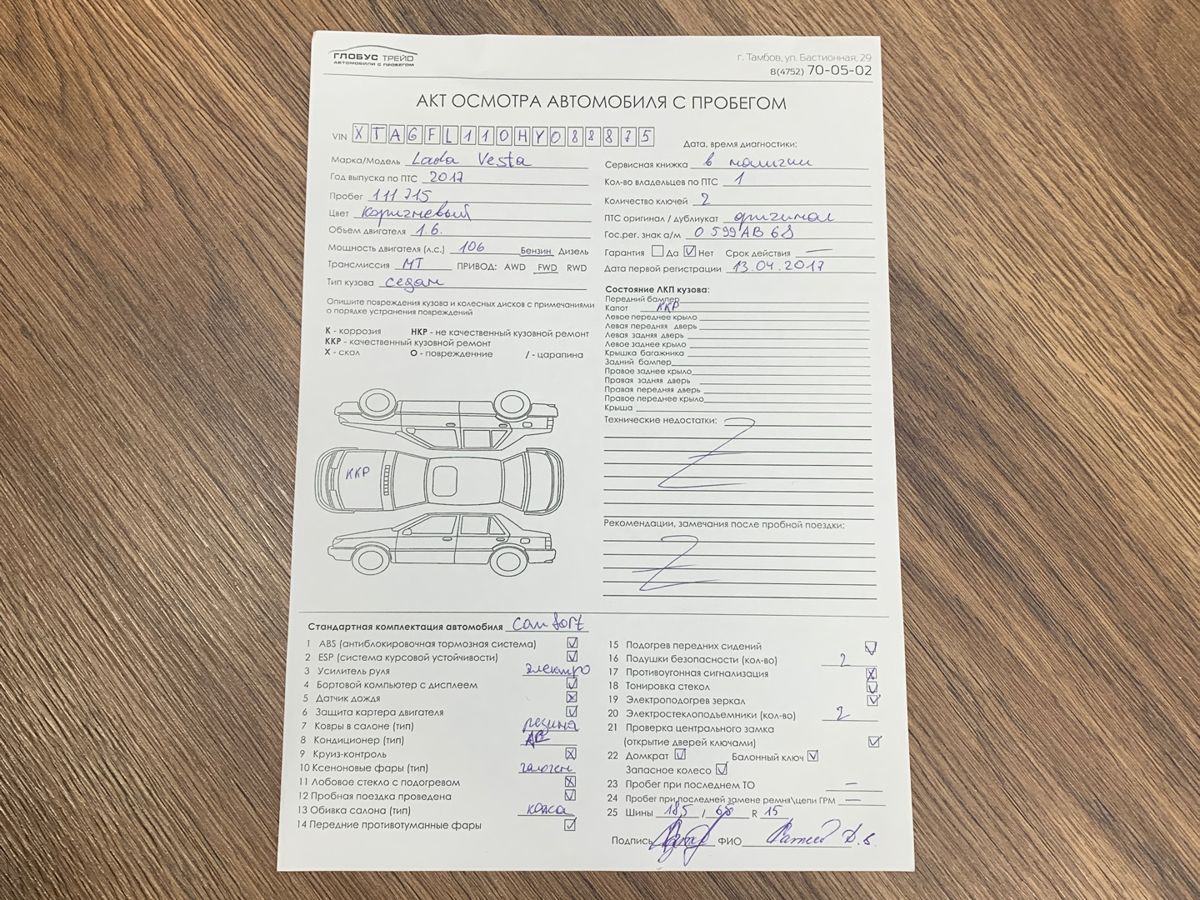 ГЛОБУС ТРЕЙД
АВТОМОБИЛИ С ПРОБЕГОМ
г. Тамбов, ул. Бастионная, 29
8(4752) 70-05-02
АКТ ОСМОТРА АВТОМОБИЛЯ С ПРОБЕГОМ
VIN XTAGFL110HY088875
Дата, время диагностики:
Марка/Модель Lada Vesta
Год выпуска по ПТС 2017
Пробег 111 715
Цвет коричневый
Объем двигателя 1.6.
Мощность двигателя (л.с.) 106 Бензин Дизель
Трансмиссия МТ ПРИВОД: AWD FWD RWD
Тип кузова седан
Опишите повреждения кузова и колесных дисков с примечаниями
о порядке устранения повреждений
К - коррозия НКР - не качественный кузовной ремонт
ККР - качественный кузовной ремонт
Х - скол О - поврежденние / - царапина
ККР
Сервисная книжка в наличии
Кол-во владельцев по ПТС 1
Количество ключей 2
ПТС оригинал / дубликат оригинал
Гос.рег. знак а/м О 599 АВ 68
Гарантия Да Нет Срок действия —
Дата первой регистрации 13.04.2017
Состояние ЛКП кузова:
Передний бампер
Капот ККР
Левое переднее крыло
Левая передняя дверь
Левая задняя дверь
Левое заднее крыло
Крышка багажника
Задний бампер
Правое заднее крыло
Правая задняя дверь
Правая передняя дверь
Правое переднее крыло
Крыша
Технические недостатки:
Рекомендации, замечания после пробной поездки:
Стандартная комплектация автомобиля Comfort
1 ABS (антиблокировочная тормозная система)
2 ESP (система курсовой устойчивости)
3 Усилитель руля электро
4 Бортовой компьютер с дисплеем
5 Датчик дождя
6 Защита картера двигателя
7 Ковры в салоне (тип) резина
8 Кондиционер (тип)
9 Круиз-контроль
10 Ксеноновые фары (тип) галоген
11 Лобовое стекло с подогревом
12 Пробная поездка проведена
13 Обивка салона (тип) кожа
14 Передние противотуманные фары
15 Подогрев передних сидений
16 Подушки безопасности (кол-во) 2
17 Противоугонная сигнализация
18 Тонировка стекол
19 Электроподогрев зеркал
20 Электростеклоподъемники (кол-во) 2
21 Проверка центрального замка
(открытие дверей ключами)
22 Домкрат Балонный ключ
Запасное колесо
23 Пробег при последнем ТО —
24 Пробег при последней замене ремня\цепи ГРМ —
25 Шины 185 / R 15
Подпись ФИО